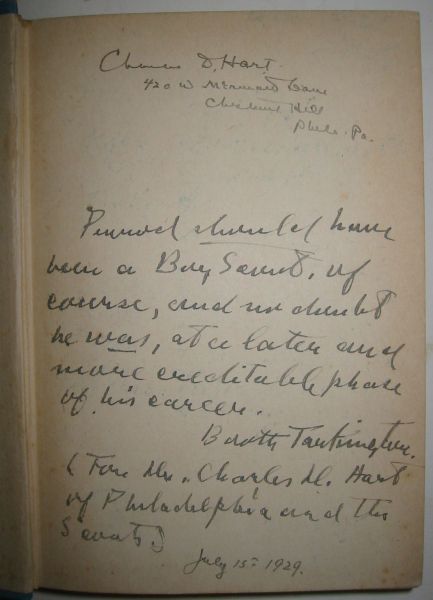 Charles D. Hart.
420 W Mermaid Lane
Chestnut Hill
Phila. Pa.
Penrod should have
been a Boy Scout, of
course, and no doubt
he was, at a later and
more creditable phase
of his career.
Booth Tarkington.
(For Mr. Charles D. Hart
of Philadelphia and the
Scouts)
July 15th 1929.